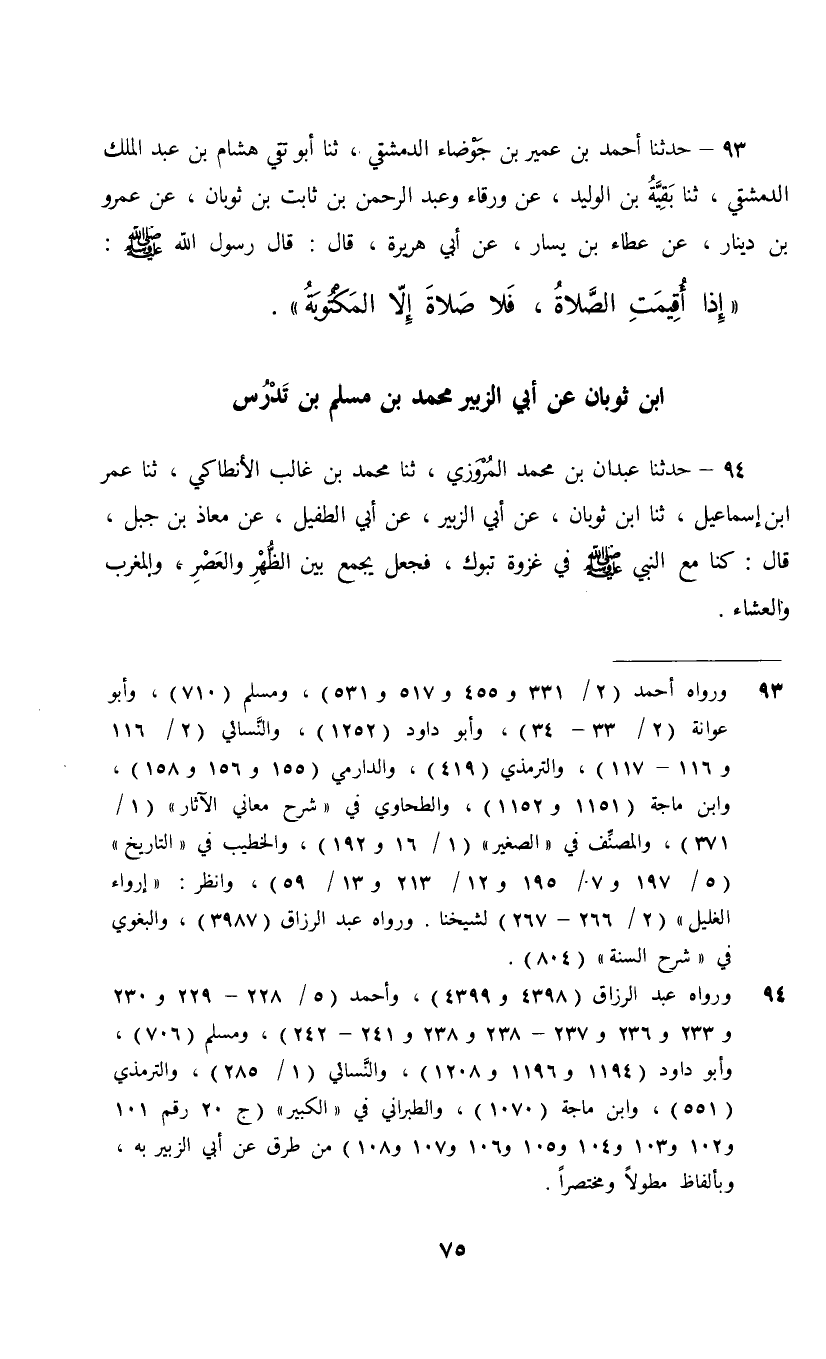 ٩٣ – حدثنا أحمد بن عمير بن جَوْضاء الدمشقي ، ثنا أبو تقي هشام بن عبد الملك
الدمشقي ، ثنا بَقِيَّةُ بن الوليد ، عن ورقاء وعبد الرحمن بن ثابت بن ثوبان ، عن عمرو
بن دينار ، عن عطاء بن يسار ، عن أبي هريرة ، قال : قال رسول الله ﷺ :
« إِذا أُقِيمَتِ الصَّلاةُ ، فَلا صَلاةَ إِلّا المَكْتُوبَةُ » .
ابن ثوبان عن أبي الزبير محمد بن مسلم بن تَدْرُس
٩٤ – حدثنا عبدان بن محمد المُرْوَزي ، ثنا محمد بن غالب الأنطاكي ، ثنا عمر
ابن إسماعيل ، ثنا ابن ثوبان ، عن أبي الزبير ، عن أبي الطفيل ، عن معاذ بن جبل ،
قال : كنا مع النبي ﷺ في غزوة تبوك ، فجعل يجمع بين الظُّهْرِ والعَصْرِ ، والمغرب
والعشاء .
٩٣ ورواه أحمد (٢ / ٣٣١ و ٤٥٥ و ٥١٧ و ٥٣١) ، ومسلم (٧١٠) ، وأبو
عوانة (٢ / ٣٣ – ٣٤) ، وأبو داود (١٢٥٢) ، والنَّسائي (٢ / ١١٦
و ١١٦ – ١١٧) ، والترمذي (٤١٩) ، والدارمي (١٥٥ و ١٥٦ و ١٥٨) ،
وابن ماجة (١١٥١ و ١١٥٢) ، والطحاوي في « شرح معاني الآثار » (١ /
٣٧١) ، والمصنِّف في « الصغير » (١ / ١٦ و ١٩٢) ، والخطيب في « التاريخ »
(٥ / ١٩٧ و ٧ / ١٩٥ و ١٢ / ٢١٣ و ١٣ / ٥٩) ، وانظر : « إرواء
الغليل » (٢ / ٢٦٦ – ٢٦٧) لشيخنا . ورواه عبد الرزاق (٣٩٨٧) ، والبغوي
في « شرح السنة » (٨٠٤) .
٩٤ ورواه عبد الرزاق (٤٣٩٨ و ٤٣٩٩) ، وأحمد (٥ / ٢٢٨ – ٢٢٩ و ٢٣٠
و ٢٣٣ و ٢٣٦ و ٢٣٧ – ٢٣٨ و ٢٣٨ و ٢٤١ – ٢٤٢) ، ومسلم (٧٠٦) ،
وأبو داود (١١٩٤ و ١١٩٦ و ١٢٠٨) ، والنَّسائي (١ / ٢٨٥) ، والترمذي
(٥٥١) ، وابن ماجة (١٠٧٠) ، والطبراني في « الكبير » (ج ٢٠ رقم ١٠١
و١٠٢ و١٠٣ و١٠٤ و١٠٥ و١٠٦ و١٠٧ و١٠٨) من طرق عن أبي الزبير به ،
وبألفاظ مطولاً ومختصراً .
٧٥